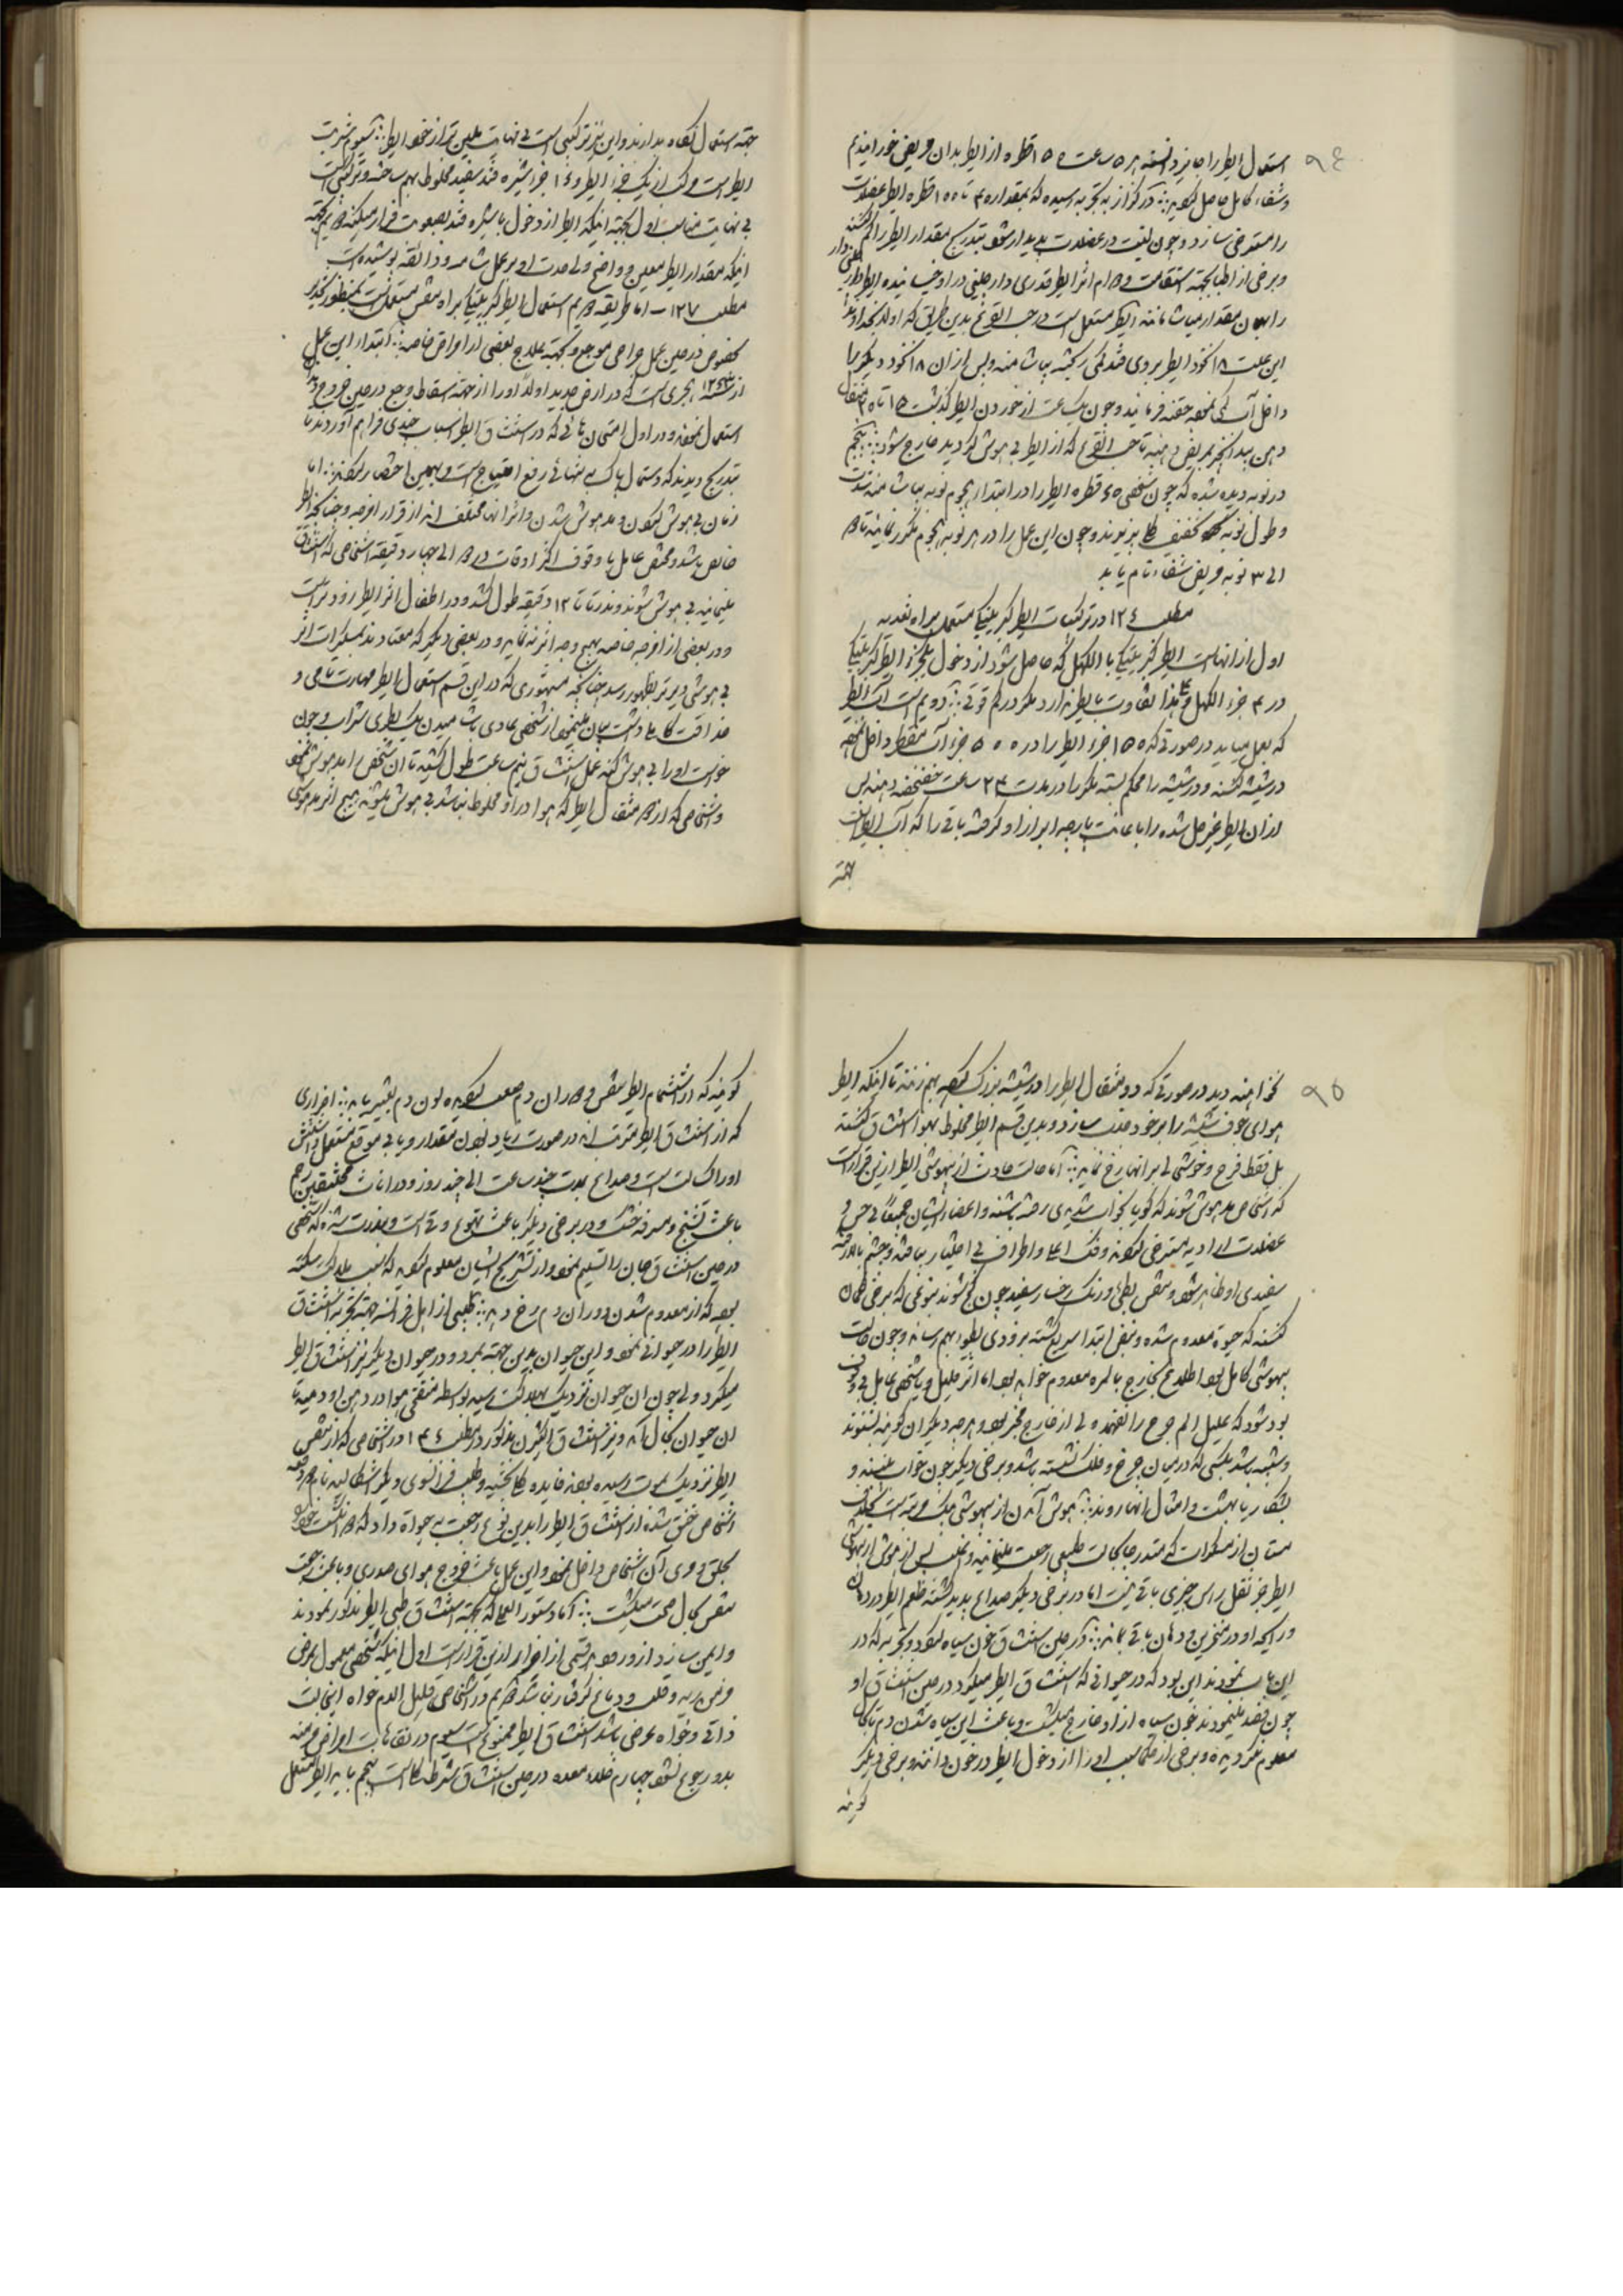 ٩٤
استعمال ایطر را جایز دانسته هر ۵ ساعت ۱۵ قطره از ایطر بدان مریض خورانیدیم
وشفاء کامل حاصل کردید در کزاز به تجربه رسیده که بمقدار ۴۰ تا ۱۵۰ قطره ایطر عضلات
را مسترخی سازد و چون لینت در عضلات پدیدار شود بتدریج مقدار ایطر را کم کنند
وبرخی از اطبا بجهته استقامت و دوام اثر ایطر قدری دارچینی در او خیسانیده ایطر دارچینی دار
را بهمان مقدار میآشامانند ایطر مستعمل است در حب القرع بدین طریق که اولا بخداوند
این علت ۱۸ نخود ایطر بروی قند کمی ریخته بیاشامند و پس از ان ۱۸ نخود دیکر با
داخل آب کمی نموده حقنه فرمایند و چون یکساعت از خوردن ایطر گذشت ۱۵ تا ۲۰ مثقال
دهن بیدانجیر بمریض دهند تا حب القرع که از ایطر بی هوش کردیده خارج شود پنجم
در نوبه دیده شده که چون شخصی ۴۵ قطره ایطر را در ابتداء هجوم نوبه بیاشامند شدت
وطول نوبه تخفیف کلی پذیرند و چون این عمل را در هر نوبه هجوم مکرر نمایند تا ۲
الی ۳ نوبه مریض شفاء تام یابد
مطلب ۱۲۶ در ترکیبات ایطر کبریتیکی مستعمل براه تغذیه
اول از انهاست ایطر کبریتیکی با الکهل که حاصل شود از دخول یکجزء ایطر کبریتیکی
در ۳ جزء الکهل و هذا تفاوت با ایطر ندارد مکر در کم قوتی دویم است آب ایطر
که بعمل میاید در صورتی که ۱۵۰ جزء ایطر را در ۵۰۰ جزء آب مقطر داخل نموده
در شیشه کنند و در شیشه را محکم بسته مکرر در مدت ۲۴ ساعت خضخضه دهند پس
از ان ایطر غیر حل شده را باعانت پارچه ابر از او گرفته باقی را که آب ایطر است
جهته
جهته استعمال نکاه بدارند و این نیز ترکیبی است بی نهایت ملین تر از خود ایطر سیوم شربت
ایطر است مرکب از یک جزء ایطر و ۱۶ جزء شیره قند سفید مخلوط بهم ساخته و ترکیبی است
بی نهایت مناسب اول بجهته اینکه ایطر از دخول با شیره قند بصعوبت فرار میکند دویم بجهته
اینکه مقدار ایطر معین و واضح ولی حدت او بر محل شامه و ذائقه پوشیده است
مطلب ۱۲۷ ـ اما طریقه دویم استعمال ایطر کبریتیکی براه تنفس مستعمل است بمنظور تخدیر
مخصوص در حین عمل جراحی موجع و بجهته علاج بعضی از امراض خاصه ابتداء این عمل
از سنه ۱۲۶۳ هجری است که در ارض جدید اولا او را از جهته اسقاط وجع در حین جروح یدی
استعمال نموده و در اول امتحان هائی که در استنشاق ایطر اسباب چندی فراهم آوردند تا
بتدریج دیدند که دستمال پاک به تنهائی رفع احتیاج است و بهمین اختصار میکنند اما
زمان بی هوش کردن و مدهوش شدن و اثر انها مختلف اند از قرار امزجه و چنانچه ایطر
خالص باشد و شخص عامل باوقوف اکثر اوقات در ۲ الی چهار دقیقه اشخاصی که استنشاق
مینمایند بی هوش شوند و ندرتا تا ۱۲ دقیقه طول کشد و در اطفال اثر ایطر زودتر است
و در بعضی از امزجه خاصه بهیچ وجه اثر نه نماید و در بعضی دیکر که معتادند بمسکرات اثر
بی هوشی دیرتر بظهور رسد چنانچه مشهوری که در این قسم استعمال ایطر مهارت تامی و
حذاقت کاملی داشت بیان مینمود از شخصی عادی باشامیدن یک بطری شراب و چون
خواست او را بی هوش کند عمل استنشاق نیم ساعت طول کشید تا ان شخص را مدهوش نمود
واشخاصی که از ۲ مثقال ایطر که هوا در او مخلوط نباشد بی هوش میشوند هیچ اثر مدهوشی
٩٥
نخواهند دید در صورتی که دو مثقال ایطر را در شیشه بزرگ کرده بهم زنند تا اینکه ایطر
هوای جوف شیشه را بر خود جذب سازد و بدین قسم ایطر مخلوط بهوا استنشاق کنند
بل فقط فرح و خوشی ای بر انها رخ نماید اما حالت حادث از بیهوشی ایطر ازین قرار است
که اشخاص مدهوش شوند که گویا بخواب شدیدی رفته باشند و اعضاء ایشان جمیعا بی حس و
عضلات ارادیه مسترخی کردند و فک اعلا و اطراف بی اختیار بیافتد و چشم بالا رفته
سفیدی او ظاهر شود و تنفس بطئ و رنک رخسار سفید چون کچ شوند بنوعی که برخی کمان
کنند که حیوة معدوم شده و نبض ابتدا سریع کشته بزودی بطوء بهم رساند و چون حالت
بیهوشی کامل بود اطلاع بخارج بالمره معدوم خواهد بود اما اثر قلیل و یا شخص عامل بی وقوف
بود شود که علیل الم جرح را نفهمد ولی از خارج مخبر بود و هرچه دیکران کویند بشنوند
وشبیه باشد بکسی که در میان چرخ و فلک نشسته باشد و برخی دیکر چون خواب بینند و
بشکار یا بهشت و امثال انها روند بهوش آمدن از بیهوشی چیک مرتبه است بخلاف
مستان از مسکرات که متدرجا بحالت طبیعی رجعت مینمایند و اغلب پس از بهوش از بیهوشی
ایطر جز ثقل راس چیزی باقی نیست اما در برخی دیکر صداع پدید کشته طعم ایطر در دهان
ورایحه او در منخرین و دهان باقی بماند در حین استنشاق خون سیاه کردد و تجربه که در
این باب نمودند این بود که در حیوانی که استنشاق ایطر میکرد در حین استنشاق او
چون فصد مینمودند خون سیاه از او خارج میکشت و باعث این سیاه شدن دم تا بحال
معلوم نکردیده و برخی از حکما سبب او را از دخول ایطر در خون دانند و برخی دیکر
کویند
کویند که از اشتمام ایطر تنفس و دوران دم صعب کردیده لون دم تغییر یابد اضراری
که از استنشاق ایطر مترتب اند در صورت زیاد بودن مقدار و یا بی موقع مستعمل داشتن
او راک است است و صداع بمدت چند ساعت الی چند روز و در اناث مختنقین رحم
باعث تشنج و سرفه خشک و در برخی دیکر باعث تهوع و قی است و بندرت شده که شخصی
در حین استنشاق جان را تسلیم نمود و از تشریح ایشان معلوم کردید که سبب هلاکت سکته
بوده که از معدوم شدن دوران دم رخ دهد طبیبی از اهل فرانسه بجهته تجربه استنشاق
ایطر را در حیوانی نمود و این حیوان بدین جهته بمرد و در حیوان دیکر نیز استنشاق ایطر
میکرد ولی چون ان حیوان نزدیک بهلاکت رسید بواسطه منفخی هوا در دهن او دمید تا
ان حیوان بحال آمد و نیز استنشاق اکثیژن مذکور در مطلب ۳۴ در اشخاصی که از تنفس
ایطر نزدیک بموت رسیده بودند فایده کلی بخشید و طبیب فرانسوی دیکر اشکالید نام در دفعه
اشخاص مختنق شده از استنشاق ایطر را بدین نوع رجعت به حیواة داد که ۲ انکشت خود را
بحلق و روی آن اشخاص داخل نمود و این عمل باعث خروج هوای صدری و باعث رجعت
تنفس بحال صحت میکشت اما دستور العملی که بجهته استنشاق طبی ایطر مذکور نمودند
وایمن سازد از ورود هر قسمی از اضرار ازین قرار است اول اینکه شخص معمول بمرض
مزمن ریه و قلب و دماغ گرفتار نباشد دویم در اشخاصی قلیل الدم خواه این حالت
ذاتی و خواه عرضی باشد استنشاق ایطر ممنوع است سیوم در نقاهت امراض مزمنه
بدو رجوع نشود چهارم خلاء معده در حین استنشاق شرط کلی است پنجم باید ایطر مستعمل